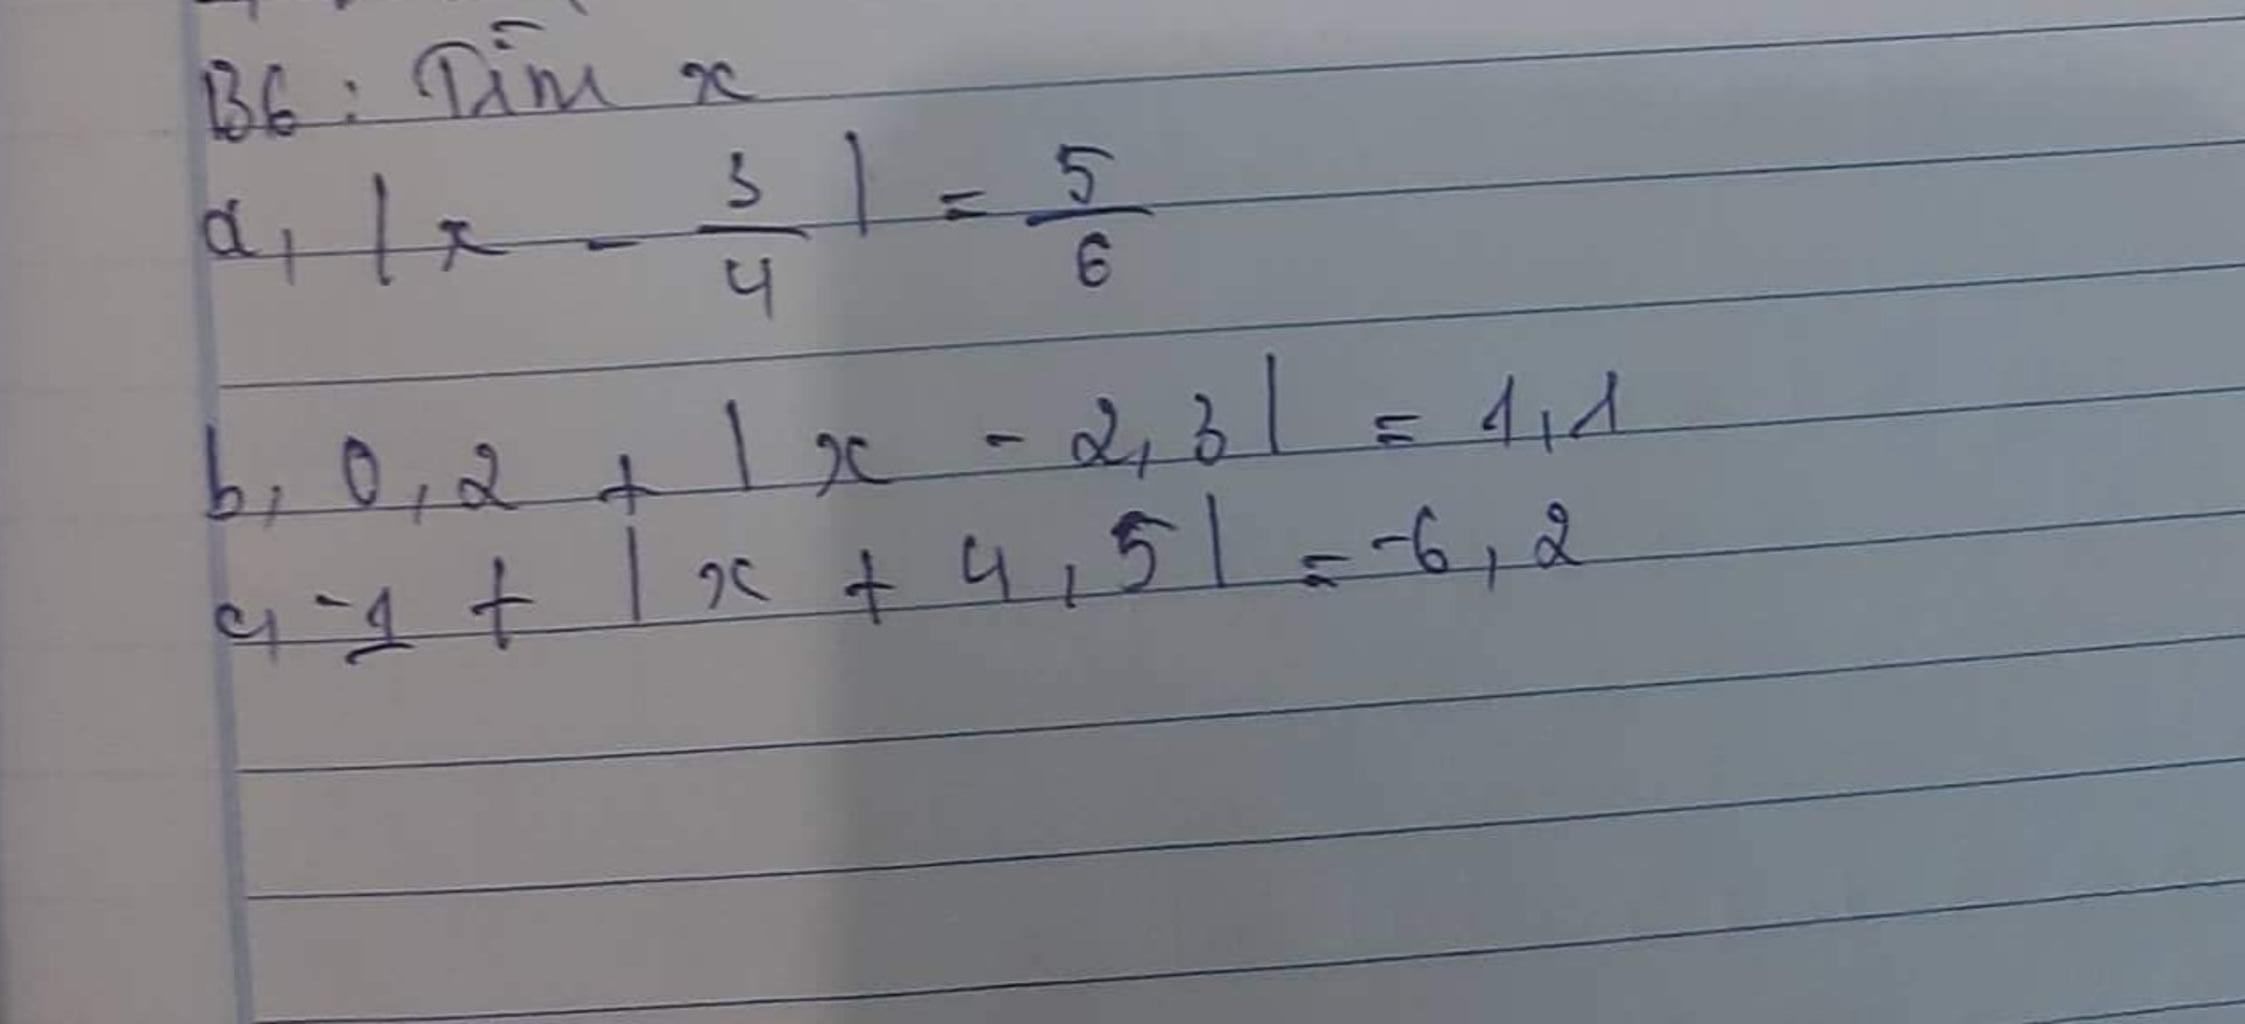 B6: Tìm x
a, |x - 3/4| = 5/6
b, 0,2 + |x - 2,3| = 1,1
c, -1 + |x + 4,5| = -6,2